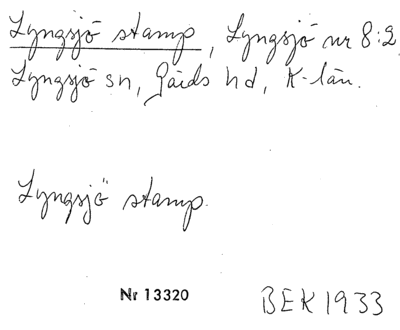 Lyngsjö stamp, Lyngsjö nr 8:2
Lyngsjö sn, Gärds hd, K-län.
Lyngsjö stamp.
Nr 13320
BEK 1933